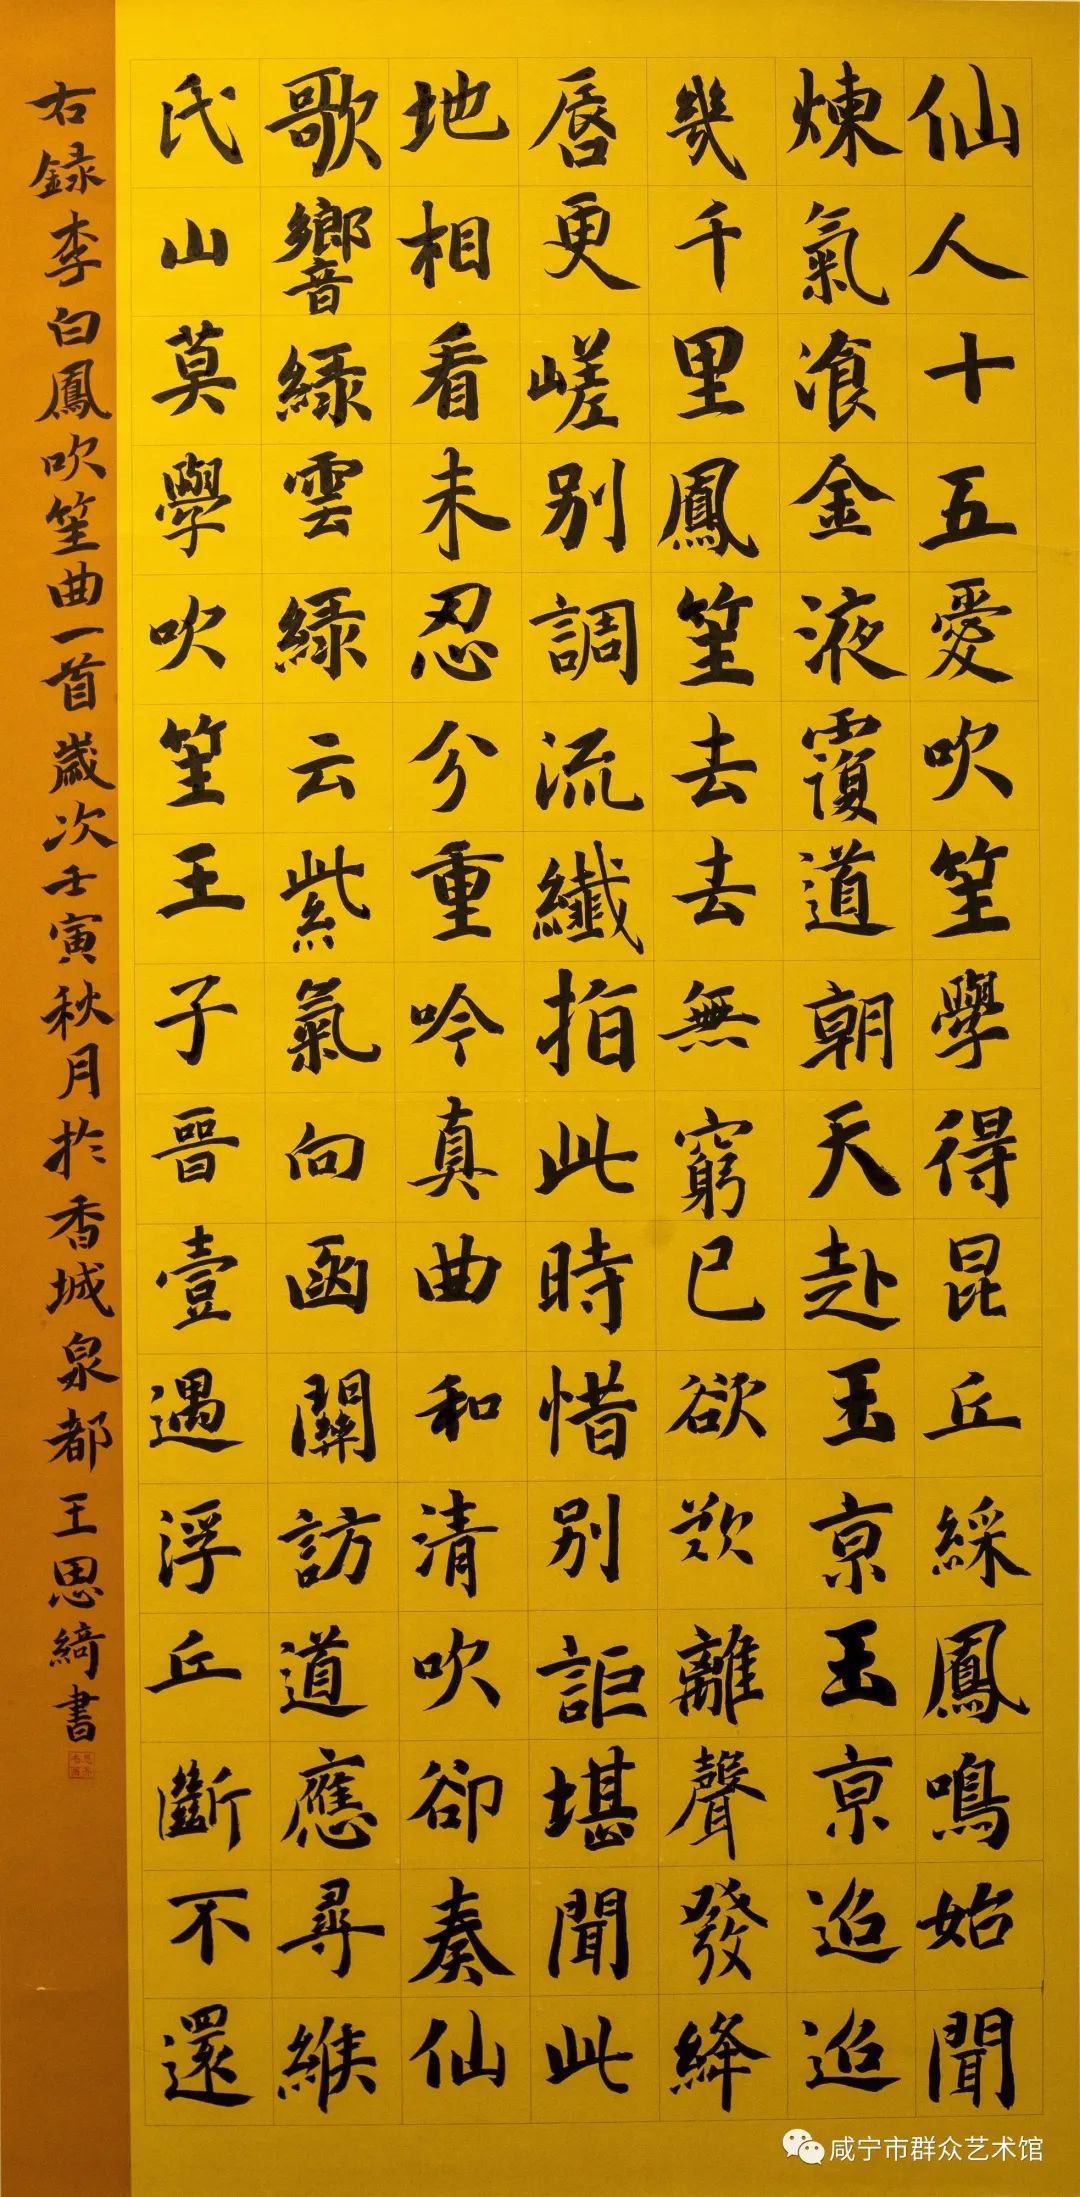 仙人十五愛吹笙學得昆丘綵鳳鳴始聞
煉氣飡金液覆道朝天赴玉京玉京迢迢
幾千里鳳笙去去無窮已欲歎離聲發絳
唇更嵯別調流纖指此時惜別詎堪聞此
地相看未忍分重吟真曲和清吹卻奏仙
歌響緑雲緑云紫氣向函關訪道應尋緱
氏山莫學吹笙王子晉壹遇浮丘斷不還
右録李白鳳吹笙曲一首歲次壬寅秋月於香城泉都王思綺書
咸宁市群众艺术馆